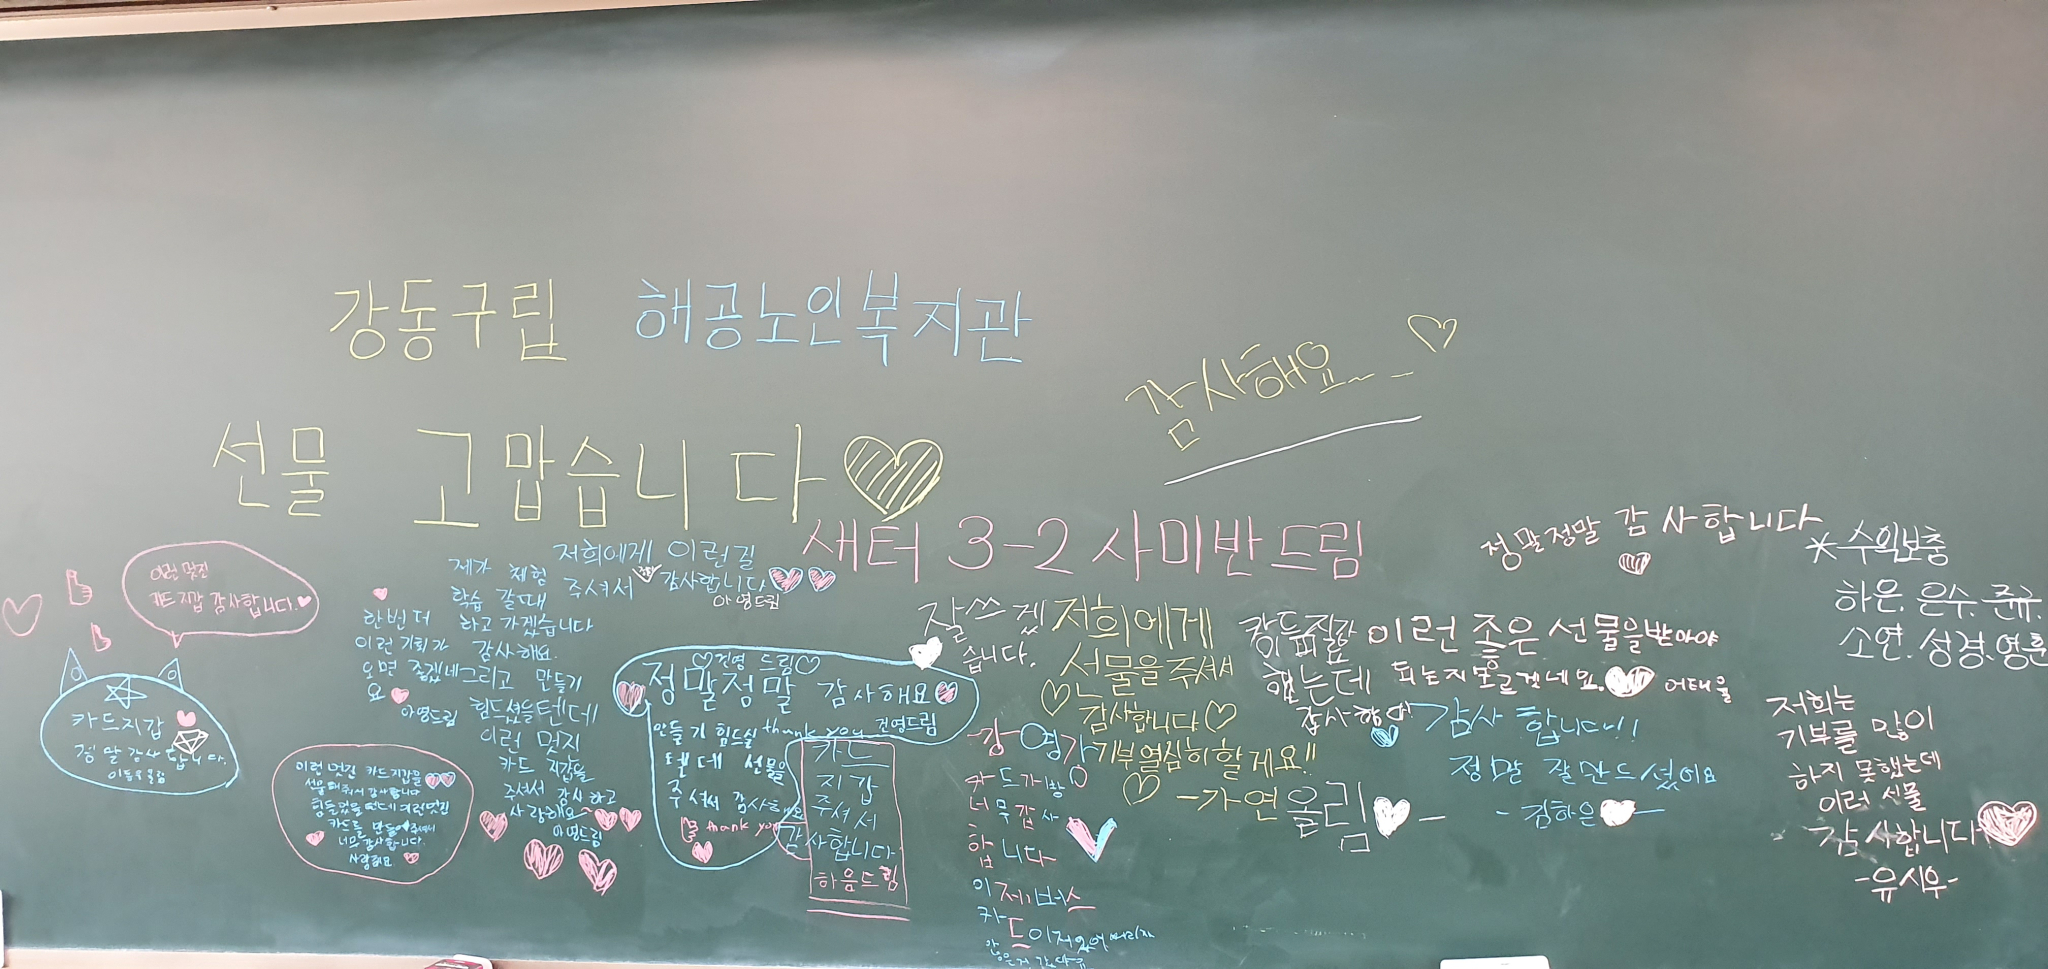 강동구립 해공노인복지관
감사해요~ _
선물 고맙습니다
새터 3-2 사미반드림
이런 멋진
카드지갑 감사합니다.
카드지갑
정말 감사합니다.
저희에게 이런걸
주셔서 감사합니다
아영드림
제가 체험
학습 갈때
하고 가겠습니다
감사해요.
그리고 만들기
힘드셨을텐데
이런 멋지
카드 지갑을
주셔서 감사하고
사랑해요
아영드림
한번 더
이런 기회가
오면 좋겠네
요
아영드림
이런 멋진 카드지갑을
선물해줘서 감사합니다
힘들었을 텐데 이런멋진
카드를 만들어주셔서
너무감사합니다.
사랑해요
건영 드림
정말정말 감사해요
만들기 힘드실 thank you 건영드림
텐데 선물을
주셔서 감사해요
thank you
카드
지갑
주셔서
감사합니다
하음드림
잘쓰겠
습니다.
저희에게
선물을주셔서
감사합니다
기부열심히할게요!!
-가연올림 -
-강영가
카드가방
너무감사
합니다
이제버스
카드이저있어버리지
않을것 같아요
정말정말 감사합니다
이런 좋은 선물을받아야
했는데 되는지모르겠네요. 어태율
감사합니다
감사합니다!!
정말 잘만드셨어요
-김하은-
*수익보충
하은. 은수. 준규.
소연. 성경. 영훈
저희는
기부를 많이
하지 못했는데
이런 선물
감사합니다
-유시우-